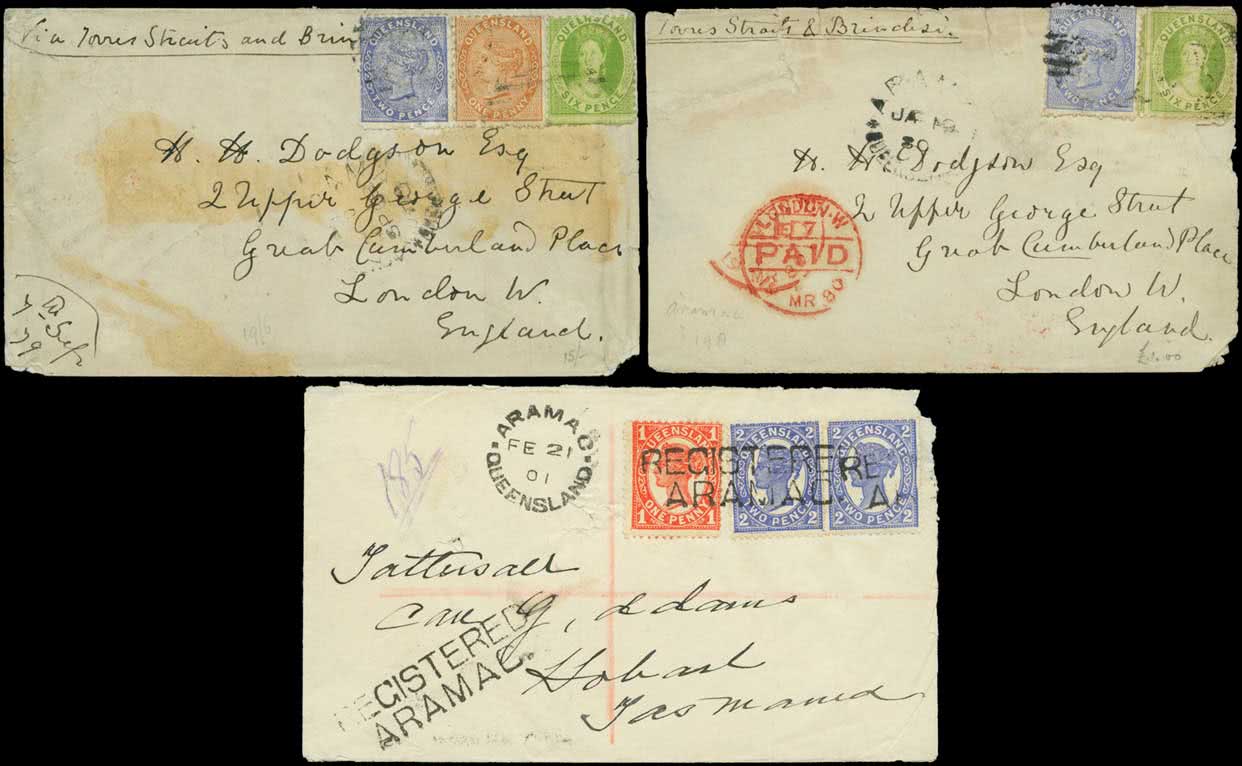 Via Torres Straits and Brin
QUEENSLAND
TWO PENCE
QUEENSLAND
ONE PENNY
QUEENSLAND
SIX PENCE
H. H. Dodgson Esq
2 Upper George Street
Great Cumberland Place
London W.
England.
19/6
15/-
Torres Straits & Brindisi.
QUEENSLAND
TWO PENCE
QUEENSLAND
SIX PENCE
JA 19
80
H H Dodgson Esq
2 Upper George Street
Great Cumberland Place
London W.
England.
LONDON·W
PAID
MR 80
Aramac
ARAMAC
FE 21
01
QUEENSLAND
1 QUEENSLAND 1
1 ONE PENNY 1
2 QUEENSLAND 2
2 TWO PENCE 2
2 QUEENSLAND 2
2 TWO PENCE 2
REGISTERE
ARAMAC.
RE
A
Tattersall
care G, Adams
Hobart
Tasmania
REGISTERED
ARAMAC.